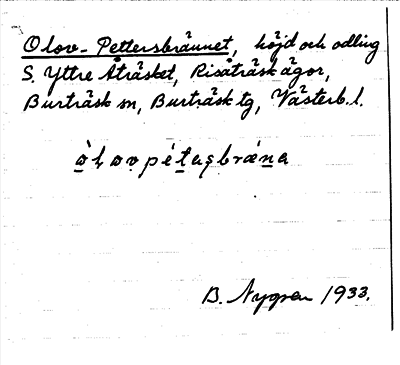 Olov-Pettersbrännet, höjd och odling
S. Yttre Åträsket, Risåträsk ägor,
Burträsk sn, Burträsk tg, Västerb. l.
B. Nygren 1933.